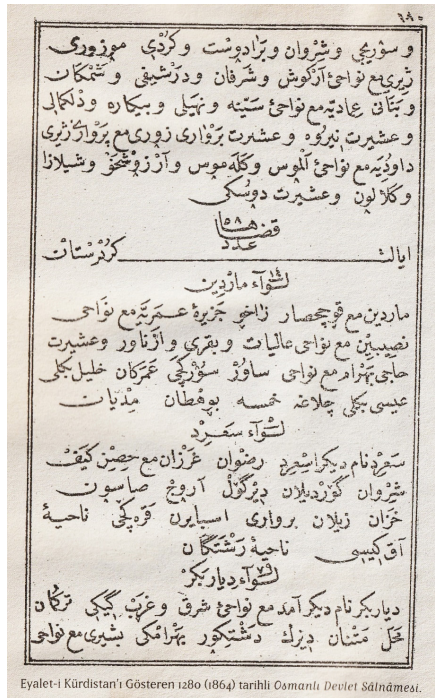 ١٩٠
و سورمجی و شروان و برادوست و کردی موزوری
ژیری مع نواحئ ارکوش و شرفان و درشیفی و شمکان
و بتانی عمادیه مع نواحئ سبنه و نهیلی و بیکاره و دلکمالی
و عشیرت نیروه و عشیرت برواری زوری مع برواری ژیری
داودیه مع نواحئ الموس و کله موس و ارزوشخو و شیلازا
و کلالون و عشیرت دوسکی
قضاها
٥٨
عدد
ایالت کردستان
١٤
لوآء ماردین
ماردین مع قوچحصار زاخو جزیرهٔ عمریه مع نواحی
نصیبین مع نواحی عالیات و بقری و ازناور و عشیرت
حاجی بهرام مع نواحی ساور سورکچی عمرکان خلیل بکلی
عیسی بکلی چلاغه خمسه بوهطان مدیات
لوآء سعرد
سعردنام دیکر اسعرد رضوان غرزان مع حصن کیف
شروان کوردیلان دیرکول اروح صاسون
خزان زیلان برواری اسبایرن قره کچی ناحیهٔ
آق کیسی ناحیهٔ رشتکان
٧٦
لوآء دیاربکر
دیاربکرنام دیکر آمد مع نواحئ شرق و غرب کیکی ترکان
محل متنان دیرک دشتکور بهرامکی بشیری مع نواحی
Eyalet-i Kürdistan'ı Gösteren 1280 (1864) tarihli Osmanlı Devlet Sâlnâmesi.